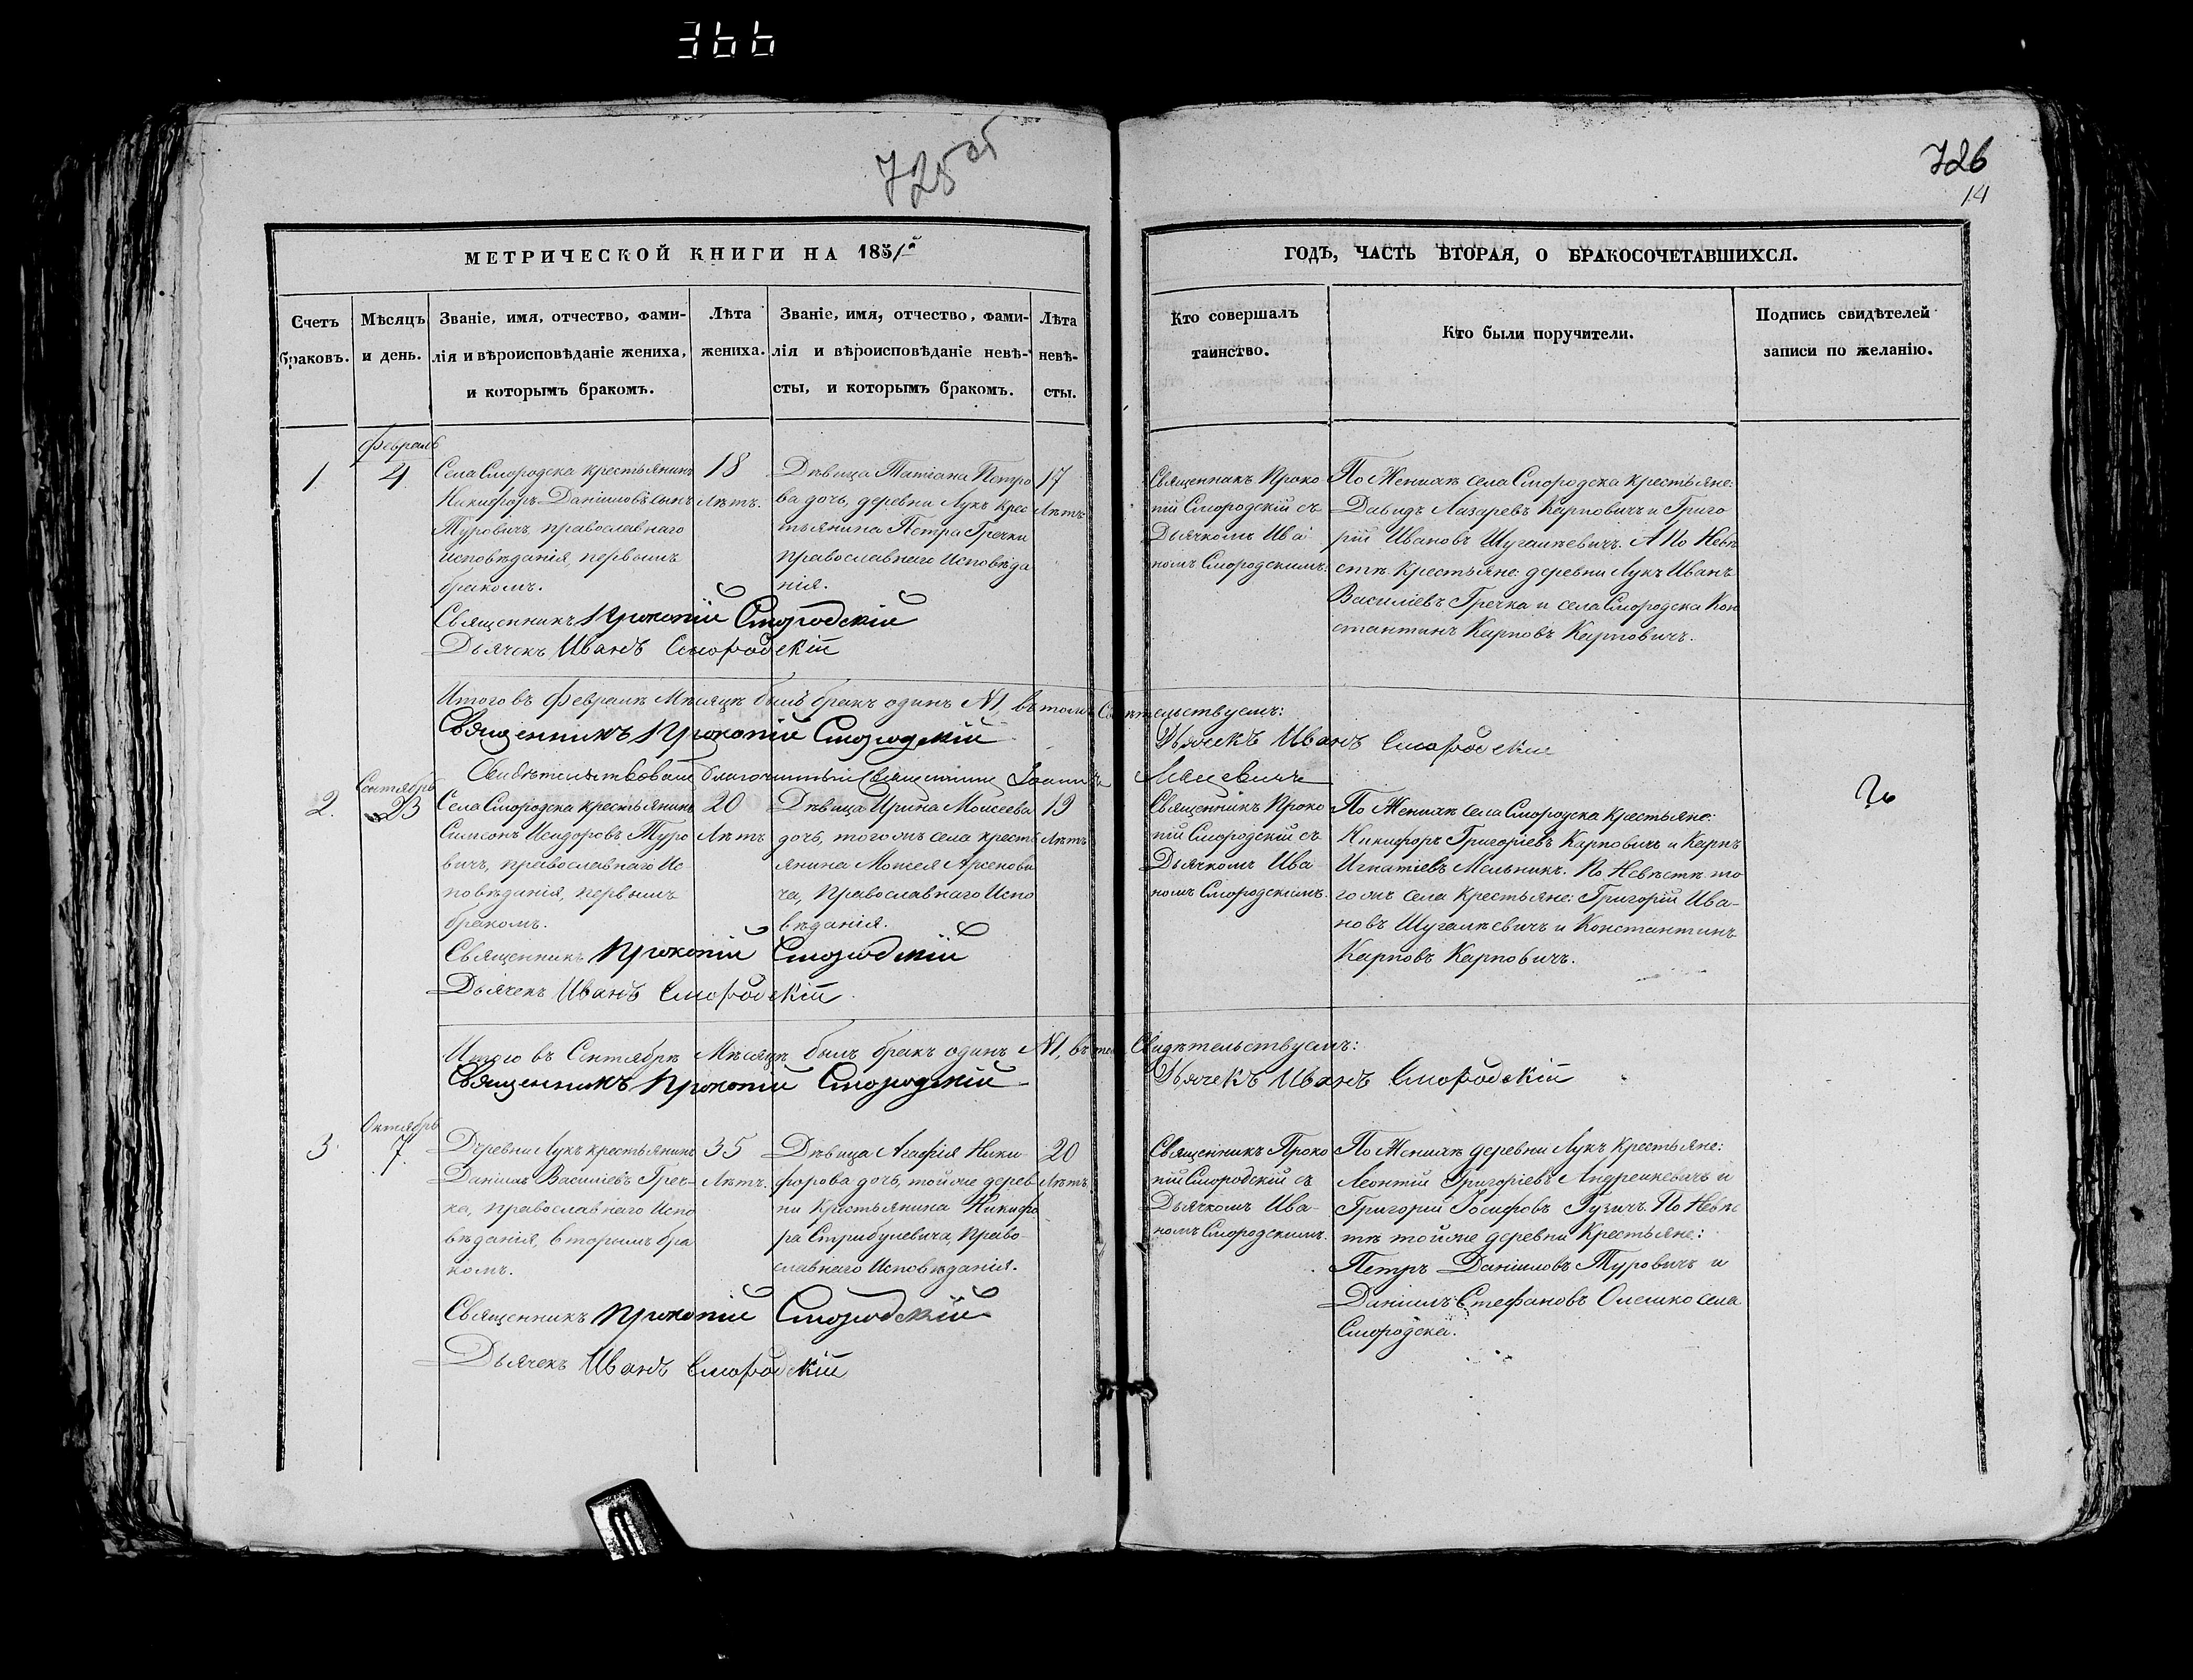 366
725 об
726
14
МЕТРИЧЕСКОЙ КНИГИ НА 1851й
ГОДЪ, ЧАСТЬ ВТОРАЯ, О БРАКОСОЧЕТАВШИХСЯ.
Счетъ браковъ.
Мѣсяцъ и день.
Званіе, имя, отчество, фами-
лія и вѣроисповѣданіе жениха,
и которымъ бракомъ.
Лѣта
жениха.
Званіе, имя, отчество, фами-
лія и вѣроисповѣданіе невѣ-
сты, и которымъ бракомъ.
Лѣта
невѣ-
сты.
Кто совершалъ
таинство.
Кто были поручители.
Подпись свидѣтелей
записи по желанію.
Февраль
1
4
Села Смородска крестьянинъ
Никифоръ Даніиловъ сынъ
Туровичъ, православнаго
исповѣданія, первымъ
бракомъ.
18
Лѣтъ.
Дѣвица Татіана Петро
ва дочь, деревни Лукъ крес
тьянина Петра Гречки
православнаго Исповѣда
нія.
17
Лѣтъ
Священникъ Проко
пій Смородскій съ
Дьячкомъ Ива
номъ Смородскимъ.
По Женихѣ села Смородска крестьяне:
Давидъ Лазаревъ Карповичъ и Григо
рій Ивановъ Шугалѣевичъ. А По Невѣ
стѣ Крестьяне: деревни Лукъ Иванъ
Василіевъ Гречка и села Смородска Кон
стантинъ Карповъ Карповичъ.
Священникъ Прокопій Смородскій
Дьячекъ Иванъ Смородскій
Итого въ Февралѣ Мѣсяцѣ былъ бракъ одинъ №1, въ томъ Свидѣтельствуемъ:
Священникъ Прокопій Смородскій
Дьячекъ Иванъ Смородскій
Свидѣтельствовалъ благочинный Священникъ Іоаннъ
Сентябрь
2.
23
Села Смородска крестьянинъ
Симеонъ Исидоровъ Туро
вичъ, православнаго Ис-
повѣданія, первымъ
бракомъ.
20
Лѣтъ
Дѣвица Ирина Моисеева
дочь, того жъ села кресть
янина Моисея Арсенови
ча, Православнаго Испо
вѣданія.
19
Лѣтъ
Священникъ Проко
пій Смородскій съ
Дьячкомъ Ива-
номъ Смородскимъ.
По Женихѣ села Смородска крестьяне:
Никифоръ Григоріевъ Карповичъ и Карпъ
Игнатіевъ Мельникъ. По Невѣстѣ то
го жъ села Крестьяне: Григорій Ива-
новъ Шугалѣевичъ и Константинъ
Карповъ Карповичъ.
Священникъ Прокопій Смородскій
Дьячекъ Иванъ Смородскій
Итого въ Сентябрѣ Мѣсяцѣ былъ бракъ одинъ №1, въ томъ Свидѣтельствуемъ:
Священникъ Прокопій Смородскій
Дьячекъ Иванъ Смородскій
Октябрь
3.
7.
Деревни Лукъ крестьянинъ
Даніилъ Василіевъ Греч-
ка, православнаго Испо
вѣданія, вторымъ бра
комъ.
35
Лѣтъ.
Дѣвица Агафія Ники-
форова дочь, той же дерев
ни Крестьянина Никифо
ра Стрибулевича, Право-
славнаго Исповѣданія.
20
Лѣтъ
Священникъ Проко
пій Смородскій съ
Дьячкомъ Ива-
номъ Смородскимъ.
По Женихѣ деревни Лукъ Крестьяне:
Леонтій Григоріевъ Андреикевичъ и
Григорій Іосифовъ Гузичъ. По Невѣс
тѣ той же деревни Крестьяне:
Петръ Даніиловъ Туровичъ и
Даніилъ Стефановъ Олешко села
Смородска.
Священникъ Прокопій Смородскій
Дьячекъ Иванъ Смородскій